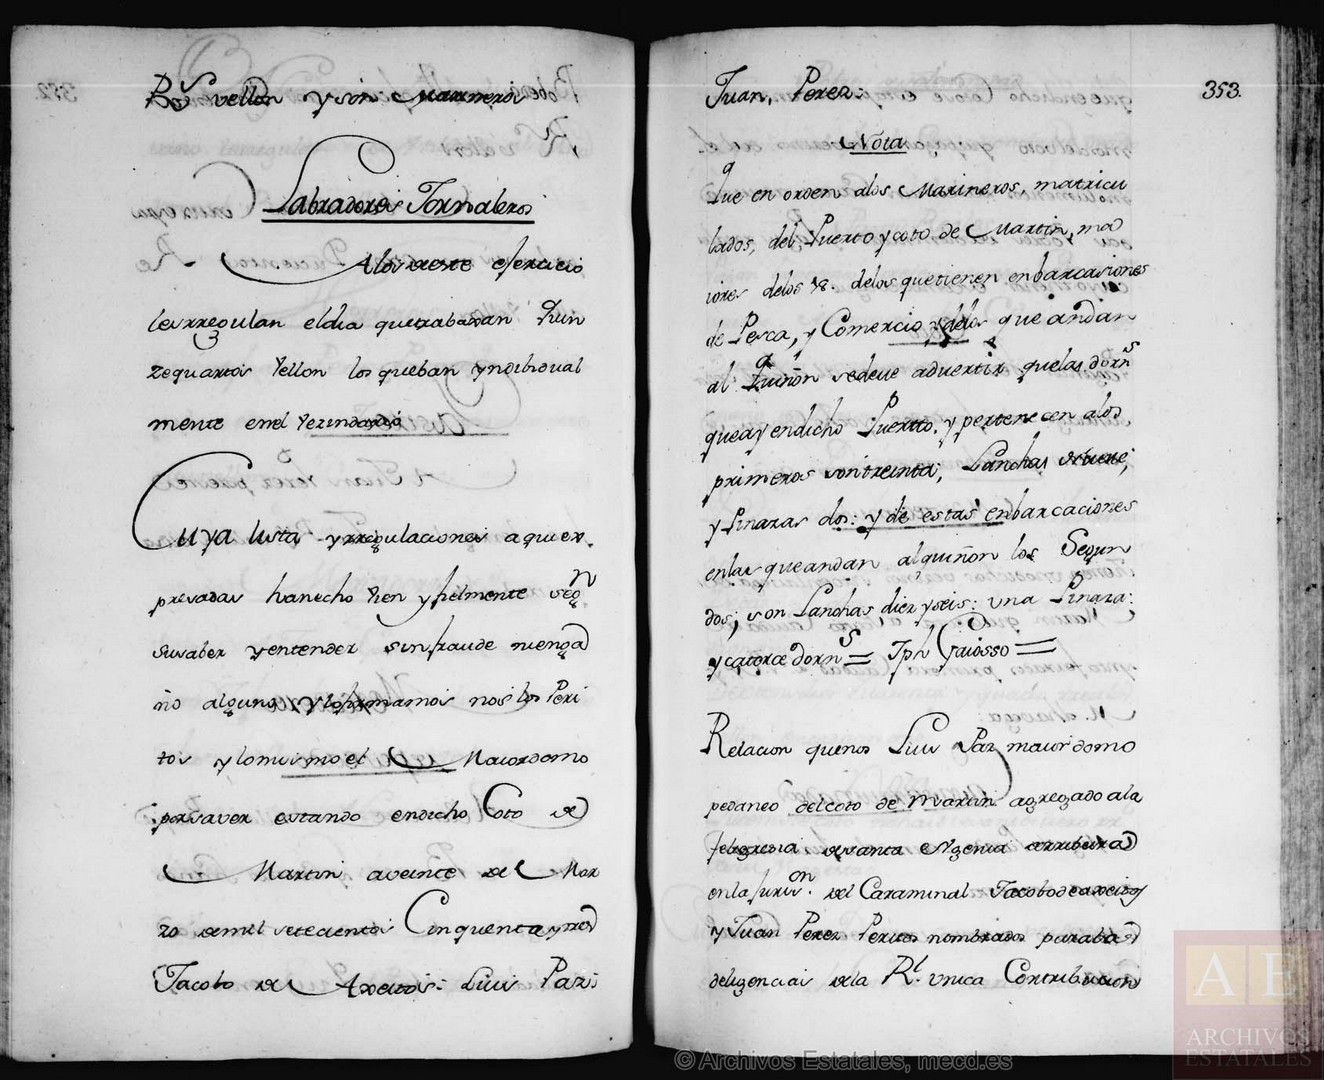 Rs vellon y son Marineros
Labradores Jornaleros
A los de este exercicio
les rregulan el dia que trabaxan Quin
ze quartos Vellon los que ban yndibidual
mente en el Vezindario
Cuya lista y rregulaciones aqui ex
presadas han echo bien y fielmente segn
su saber y entender sin fraude ni enga
ño alguno y lo firmamos nos los Peri
tos y lo mismo el Maiordomo
por saver estando en dicho Coto de
Martin a veinte de Mar
zo de mil setecientos Cinquenta y tres
Jacobo de Axeitos: Luis Paz:
353.
Juan, Perez:
Nota
Que en orden a los Marineros, matricu
lados, del, Puerto y coto de Martin, ma
iores de los 18. de los que tienen enbarcaciones
de Pesca, y Comercio y de los que andan
al Quiñon se deve advertir que las dorns
que ay en dicho Puertto, y pertenecen a los
primeros son treinta; Lanchas nueve;
y Pinazas dos: y de estas enbarcaciones
en las que andan al quiñon los Segun
dos; son Lanchas diez y seis: una Pinaza:
y catorce dorns = Jph Gaiosso =
Relacion que nos Luis Paz maiordomo
pedaneo del coto de Martin agregado a la
felegresia de santa Eugenia de rribeira
en la Jurison. del Caraminal Jacobo de axeitos
y Juan Perez Peritos nombrados para las
deligencias de la Rl. Unica Contribucion
© Archivos Estatales, mecd.es
AE
ARCHIVOS
ESTATALES